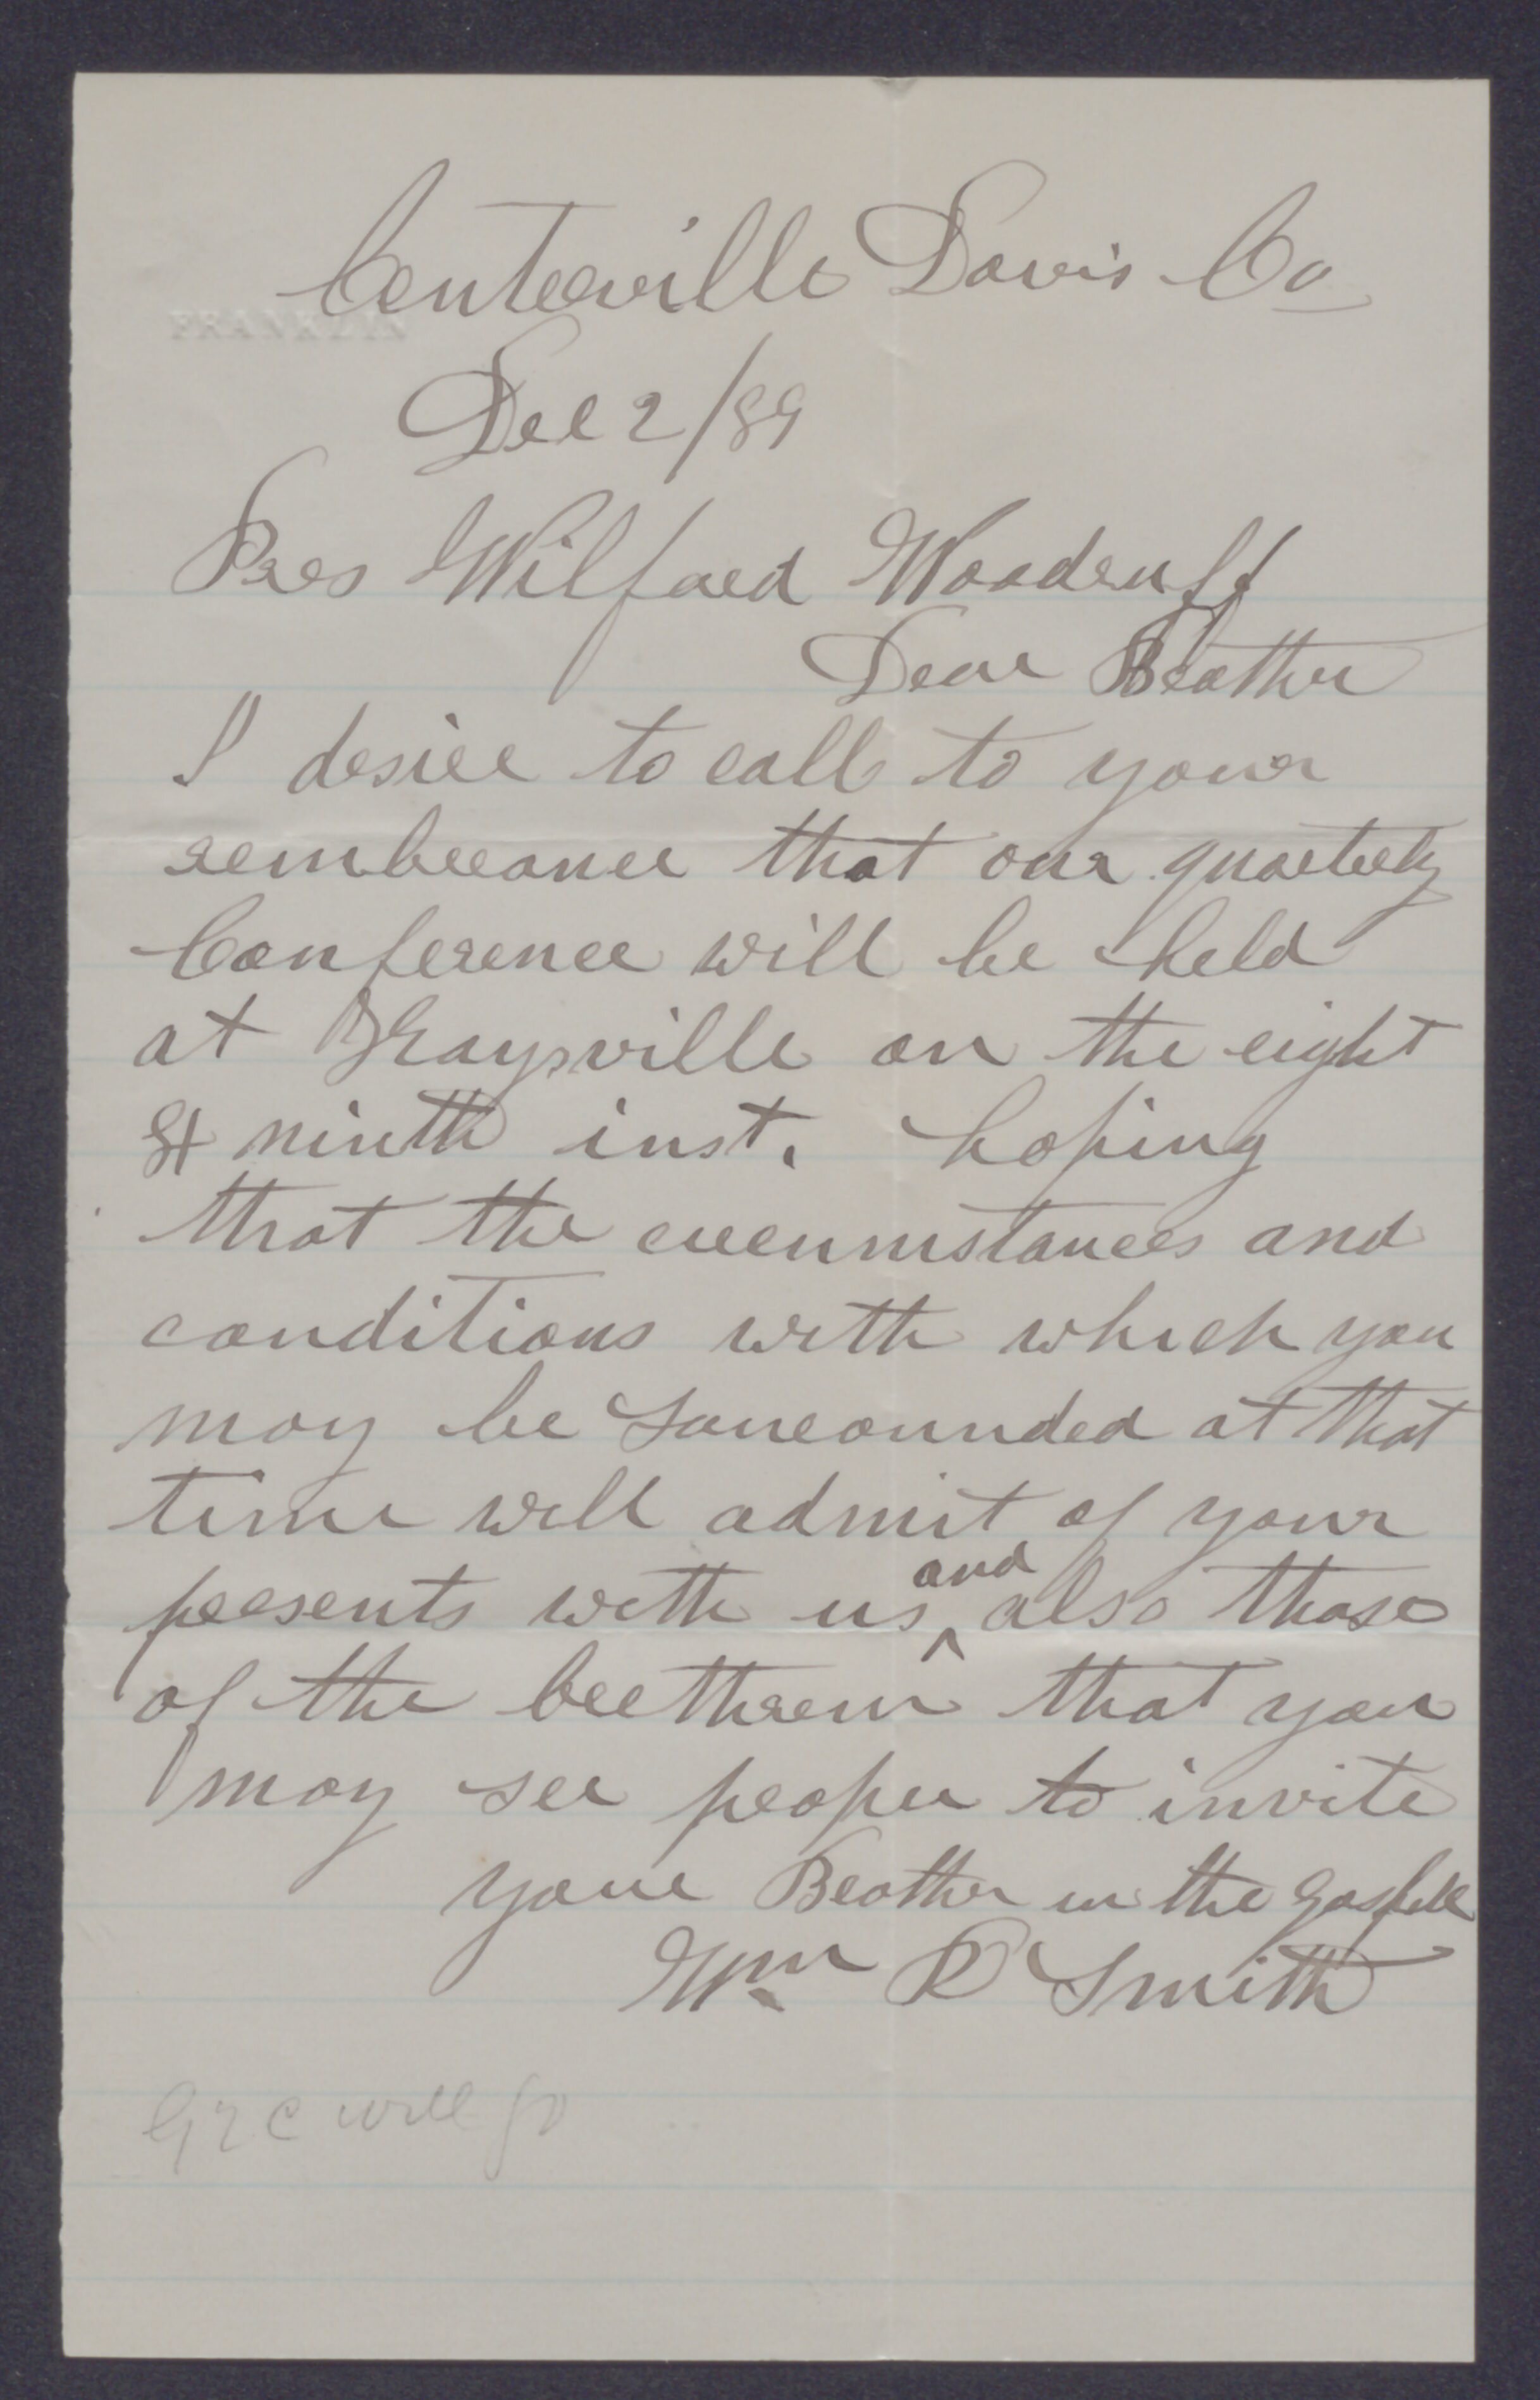 Centerville Davis Co
FRANKLIN
Dec 2/89
Pres Wilford Woodruff
Dear Brother
I desire to call to your
rembrance that our quarterly
Conference will be held
at Kaysville on the eight
& ninth inst. hoping
that the circumstances and
conditions with which you
may be surrounded at that
time will admit of your
presents with us ^and also those
of the brethren that you
may see proper to invite
your Brother in the Gospell
Wm R Smith
will go